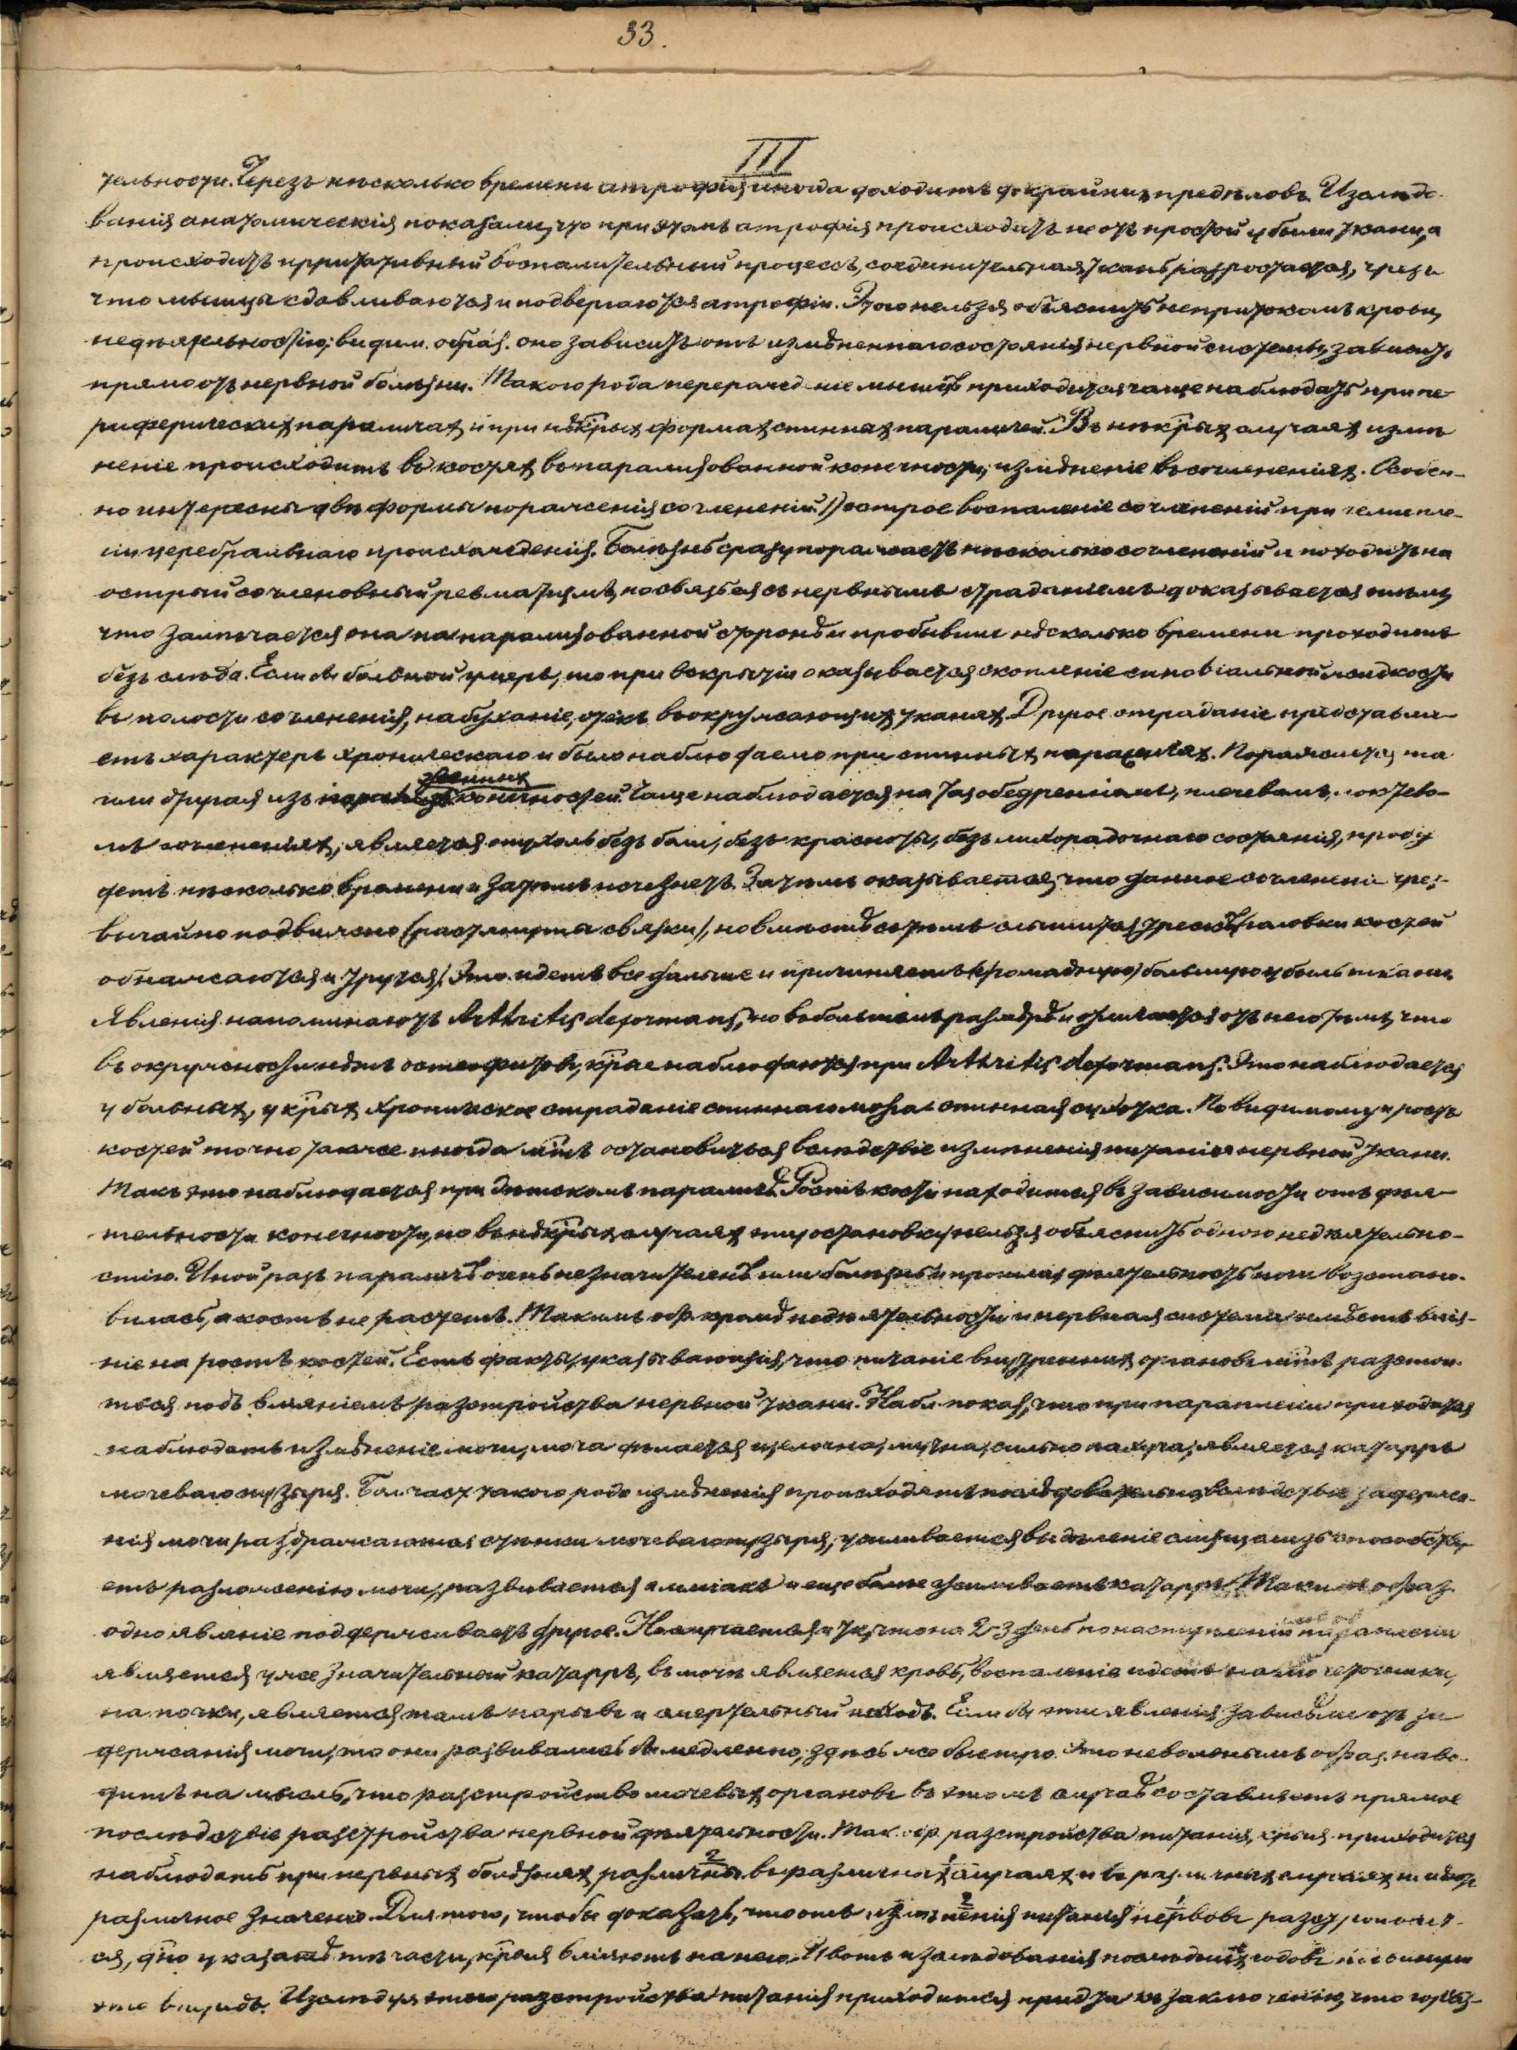 33.
III
тельности. Черезъ нѣсколько времени атрофія иногда доходитъ до крайнихъ предѣловъ. Изслѣдо-
ванія анатомическія показали, что при этомъ атрофія происходитъ не отъ простой убыли ткани, а
происходитъ ирритативный воспалительный процессъ, соединительная ткань разростается, чрезъ
что мышцы сдавливаются и подвергаются атрофіи. Этого нельзя объяснить непритокомъ крови,
недѣятельностію; видим. образ. оно зависитъ отъ измѣненнаго состоянія нервной системы, зависитъ
прямо отъ нервной болѣзни. Такого рода перерожденіе мышцъ приходится чаще наблюдать при пе-
риферическихъ параличахъ и при нѣкрыхъ формахъ спинныхъ параличей. Въ нѣкрыхъ случаяхъ измѣ
неніе происходитъ въ костяхъ въ парализованной конечности, измѣненіе въ сочлененіяхъ. Особен-
но интересны двѣ формы пораженія сочлененій 1) острое воспаленіе сочлененій при гемипле-
гіи церебральнаго происхожденія. Болѣзнь сразу поражаетъ нѣсколько сочлененій и походитъ на
острый сочленовный ревматизмъ, но связь ея съ нервнымъ страданіемъ доказывается тѣмъ,
что замѣчается она на парализованной сторонѣ и пробывши нѣсколько времени проходитъ
безъ слѣда. Если бы больной умеръ, то при вскрытіи оказывается скопленіе синовіальной жидкости
въ полости сочлененія, набуханіе, отекъ въ окружающихъ тканяхъ. Другое страданіе представля-
етъ характеръ хроническаго и было наблюдаемо при спинныхъ параличахъ. Поражается та
или другая изъ конечностей. Чаще наблюдается на тазобедренномъ, плечевомъ, локтево-
мъ сочлененіяхъ; является опухоль безъ боли, безъ красноты, безъ лихорадочнаго состоянія, пробу
детъ нѣсколько времени и затѣмъ исчезнетъ. Затѣмъ оказывается, что данное сочлененіе чрез-
вычайно подвижно (растянуты связки), но вмѣстѣ съ тѣмъ слышится трескъ (головки костей
обнажаются и трутся). Это идетъ все дальше и причиняетъ (громадную) большую убыль ткани.
Явленія напоминаютъ Arthritis deformans, но въ большемъ размѣрѣ и отличается отъ него тѣмъ, что
въ окружности нѣтъ остеофитовъ, крые наблюдаются при Arthritis deformans. Это наблюдается
у больныхъ, у крыхъ хроническое страданіе спиннаго мозга спинная сухотка. Повидимому и ростъ
костей точно также иногда мжтъ остановиться вслѣдствіе измѣненія питанія нервной ткани.
Такъ это наблюдается при дѣтскомъ параличѣ. Ростъ кости находится въ зависимости отъ дѣя-
тельности конечности, но въ нѣкрыхъ случаяхъ эту остановку нельзя объяснить одною недѣятельно-
стію. Иной разъ параличъ очень незначителенъ или болѣзнь и прошла, дѣятельность ноги возстано-
вилась, а кость не растетъ. Такимъ обр. кромѣ недѣятельности и нервная система имѣетъ влія-
ніе на ростъ костей. Есть факты, указывающія, что питаніе внутреннихъ органовъ мжтъ разстои-
ться подъ вліяніемъ разстройства нервной ткани. Набл. показ., что при параплегіи приходится
наблюдать измѣненіе мочи, моча дѣлается щелочна, мутна, сильно пахуча; является катарръ
мочеваго пузыря. Бол. част. такого рода измѣненія происходятъ послѣдовательно, вслѣдствіе задержа-
нія мочи раздражаются стѣнки мочеваго пузыря, усиливается выдѣленіе слизи, слизь способству-
етъ разложенію мочи, развивается амміакъ и еще болѣе усиливаетъ катарръ. Такимъ образ.
одно явленіе поддерживаетъ другое. Но случается и такъ, что на 2-3 день по наступленіи параплегіи
является уже значительный катарръ, въ мочѣ является кровь, воспаленіе идетъ на мочеточники,
на почки, является тамъ нарывъ и смертельный исходъ. Если бы эти явленія зависѣли отъ за
держанія мочи, то они развивались бы медленно, здѣсь же быстро. Это невольнымъ образ. наво-
дитъ на мысль, что разстройство мочевыхъ органовъ въ этомъ случаѣ составляетъ прямое
послѣдствіе разстройства нервной дѣятельности. Так. обр. разстройства питанія, крыя приходится
наблюдать при нервныхъ болѣзняхъ, различны въ различныхъ случаяхъ и въ различныхъ случаяхъ имѣютъ
различное значеніе. Для того, чтобы доказать, что отъ измѣненія питанія нервовъ разстроивает-
ся, дно указать тѣ части, крыя вліяютъ на него. И вотъ изслѣдованія послѣднихъ годовъ
это виднѣ. Изслѣдуя этого разстройства питанія приходится придти къ заключенію, что